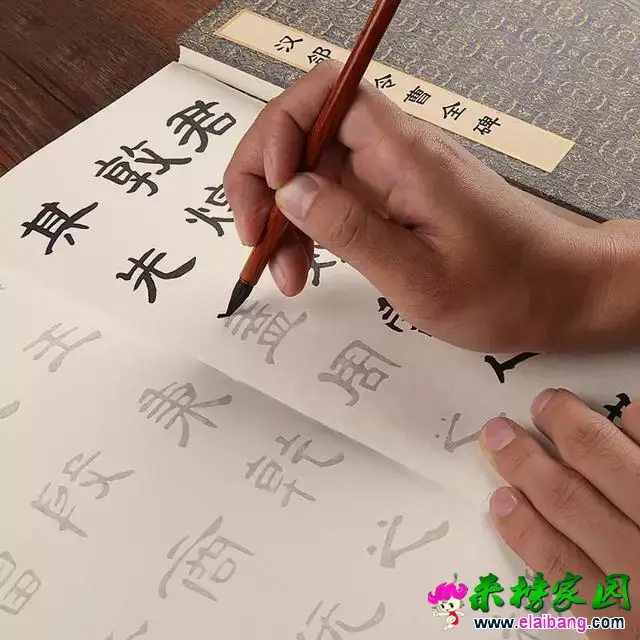 汉郃 令曹全碑
君
敦煌 人
其先盖周之
王秉乾之
殷商
来榜家园
www.elaibang.com